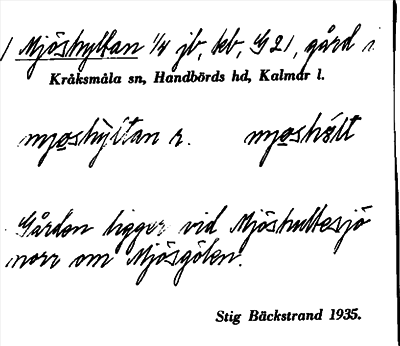 1 Mjöshyltan 1/4 jb, kb, G 21, gård i
Kråksmåla sn, Handbörds hd, Kalmar l.
mjo̲shỳltan r. mjo̲shúlt
Gården ligger vid Mjöshultesjö
norr om Mjösgölen.
Stig Bäckstrand 1935.